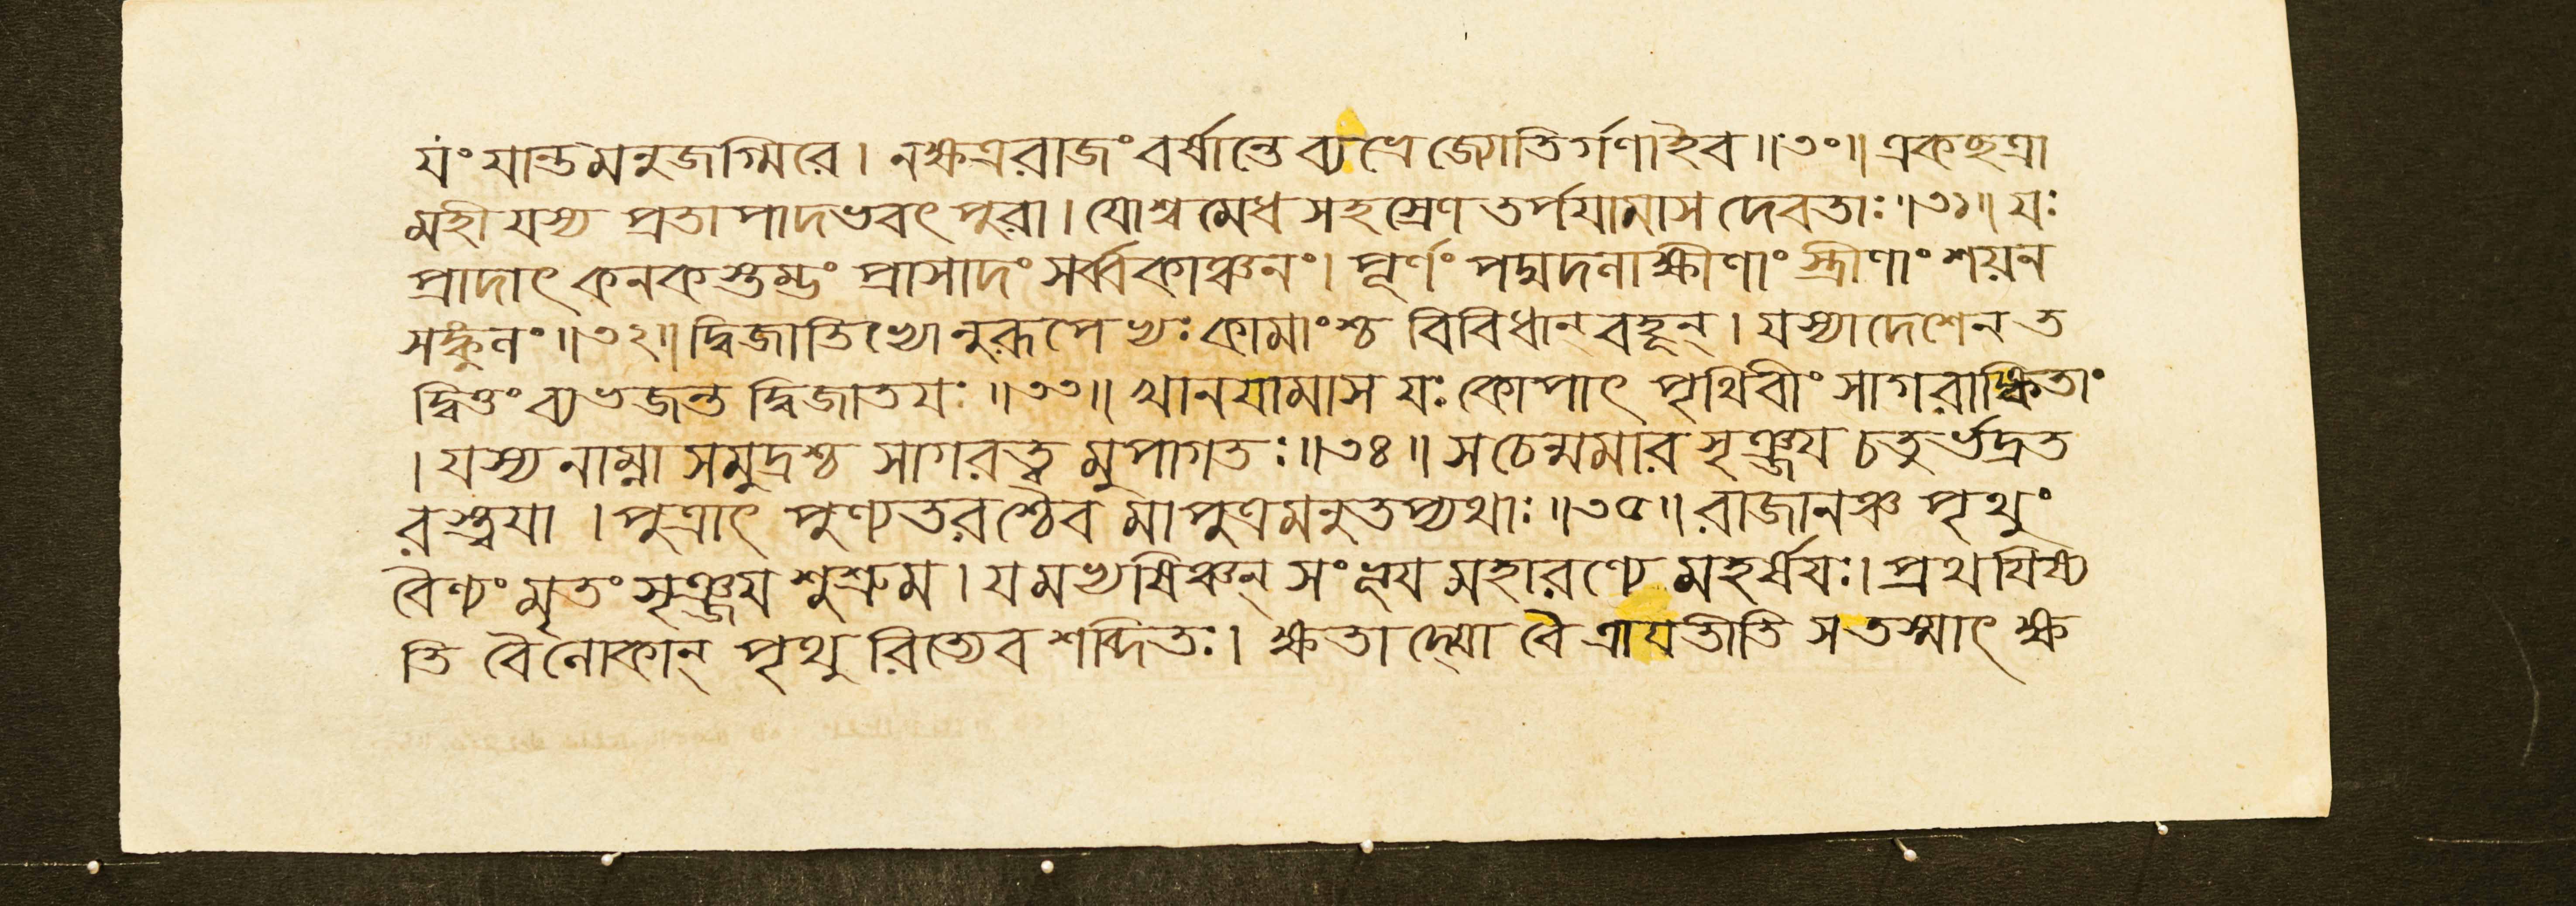 যং যান্তমনুজগ্মিরে। নক্ষত্ররাজং বর্ষান্তে ব্যভ্রে জ্যোতির্গণাইব॥৩০॥ একছত্রা
মহী যস্য প্রতাপাদভবৎ পুরা। যোশ্বমেধ সহস্রেণ তর্পযামাস দেবতাঃ॥৩১॥ যঃ
প্রাদাৎ কনকস্তম্ভং প্রাসাদং সর্ব্বকাঞ্চনং। পূর্ণং পদ্মদলাক্ষীণাং স্ত্রীণাং শয়ন
সঙ্কুলং॥৩২॥ দ্বিজাতিভ্যোনুরূপেভ্যঃ কামাংশ্চ বিবিধান্ বহূন্। যস্যাদেশেন ত
দ্বিত্তং ব্যভজন্ত দ্বিজাতযঃ॥৩৩॥ খানযামাস যঃ কোপাৎ পৃথিবীং সাগরাঙ্কিতাং
। যস্য নাম্না সমুদ্রশ্চ সাগরত্ব মুপাগতঃ॥৩৪॥ স চেন্মমার সৃঞ্জয চতুর্ভদ্রত
রস্ত্বযা। পুত্রাৎ পুণ্যতরশ্চৈব মা পুত্রমনুতপ্যথাঃ॥৩৫॥ রাজানঞ্চ পৃথুং
বৈণ্যং মৃতং সৃঞ্জয শুশ্রুম। যমভ্যষিঞ্চন্ সংভূয মহারণ্যে মহর্ষযঃ। প্রথযিষ্য
তি বৈ লোকান্ পৃথু রিত্যেব শব্দিতঃ। ক্ষতাদ্যো বৈ ত্রাযতীতি স তস্মাৎ ক্ষ